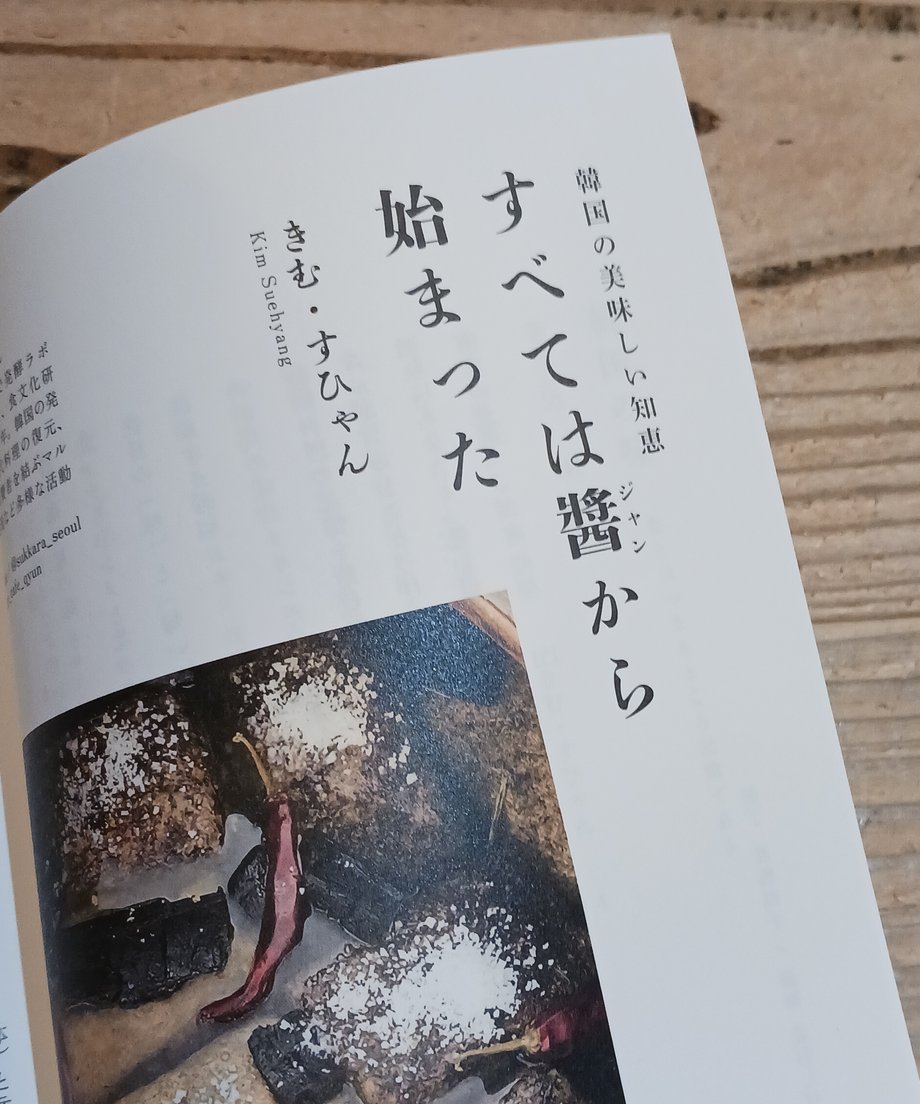 韓国の美味しい知恵
すべては醬から
ジャン
始まった
きむ・すひゃん
Kim Suehyang
発酵ラボ
、食文化研
。韓国の発
料理の復元、
を結ぶマル
など多様な活動
@sukkara_seoul
cafe_qyun